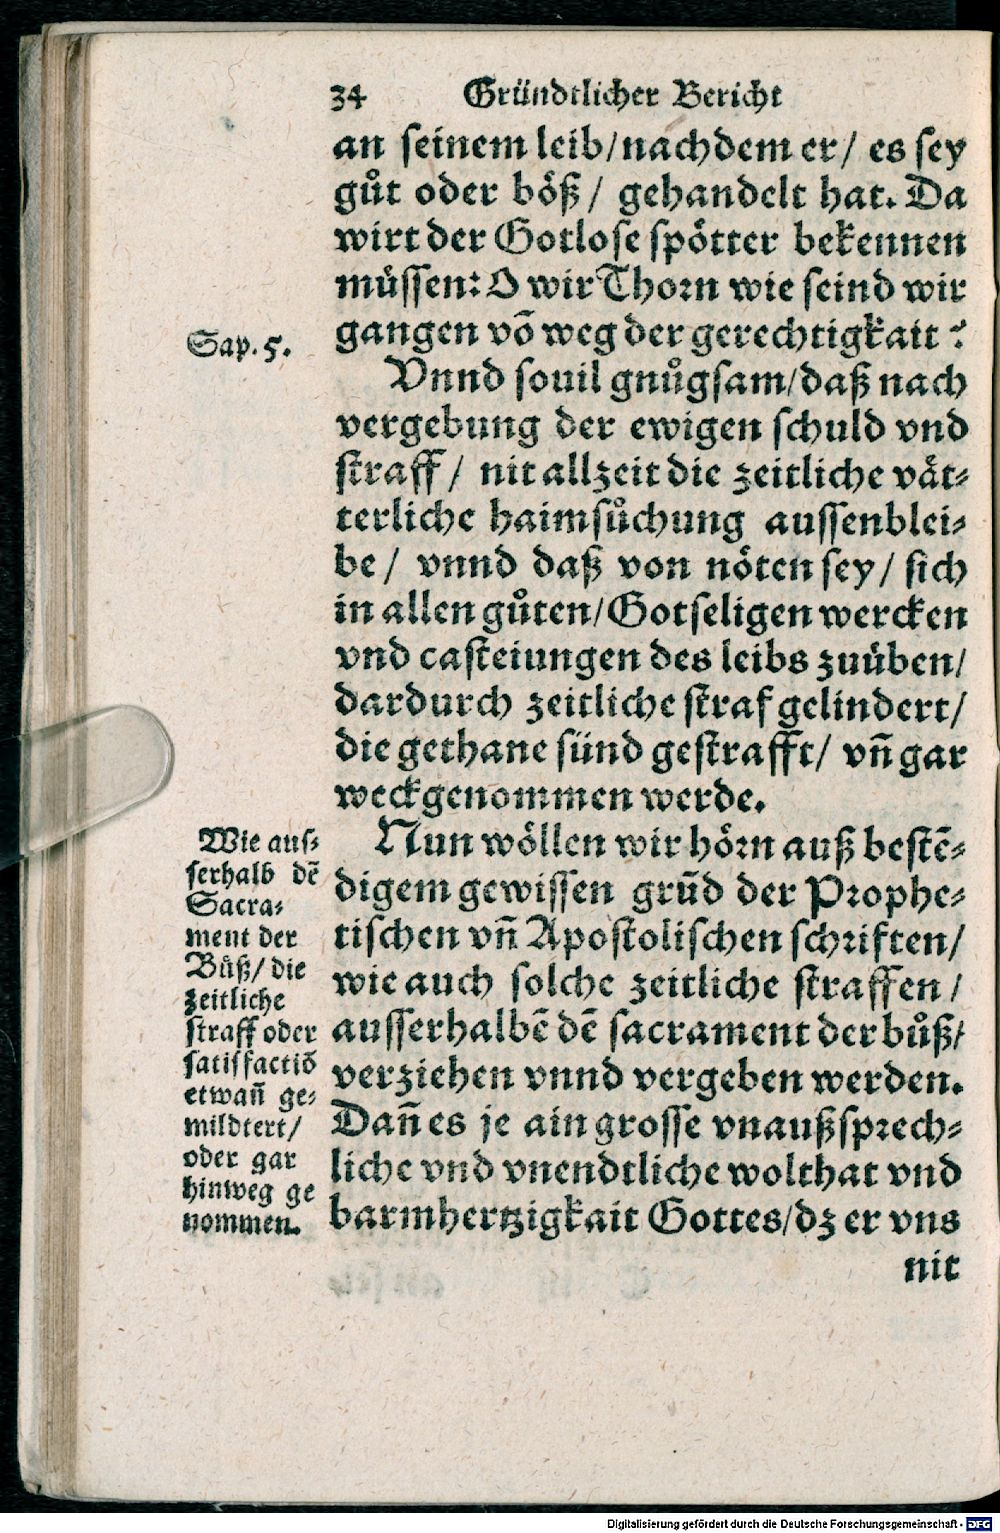 34 Gründtlicher Bericht
an seinem leib/nachdem er/ es sey
gůt oder böß/ gehandelt hat. Da
wirt der Gotlose spötter bekennen
müssen: O wir Thorn wie seind wir
gangen võ weg der gerechtigkait?
Sap. 5.
Vnnd souil gnůgsam/daß nach
vergebung der ewigen schuld vnd
straff/ nit allzeit die zeitliche vät-
terliche haimsůchung aussenblei-
be/ vnnd daß von nöten sey/ sich
in allen gůten/Gotseligen wercken
vnd casteiungen des leibs zuüben/
dardurch zeitliche straf gelindert/
die gethane sünd gestrafft/ vñ gar
weckgenommen werde.
Nun wöllen wir hörn auß bestẽ-
digem gewissen grũd der Prophe-
tischen vñ Apostolischen schriften/
wie auch solche zeitliche straffen/
ausserhalbẽ dẽ sacrament der bůß/
verziehen vnnd vergeben werden.
Dañ es je ain grosse vnaußsprech-
liche vnd vnendtliche wolthat vnd
barmhertzigkait Gottes/dz er vns
nit
Wie aus-
serhalb dẽ
Sacra-
ment der
Bůß/ die
zeitliche
straff oder
satisfactiõ
etwañ ge-
mildtert/
oder gar
hinweg ge
nommen.
Digitalisierung gefördert durch die Deutsche Forschungsgemeinschaft - DFG